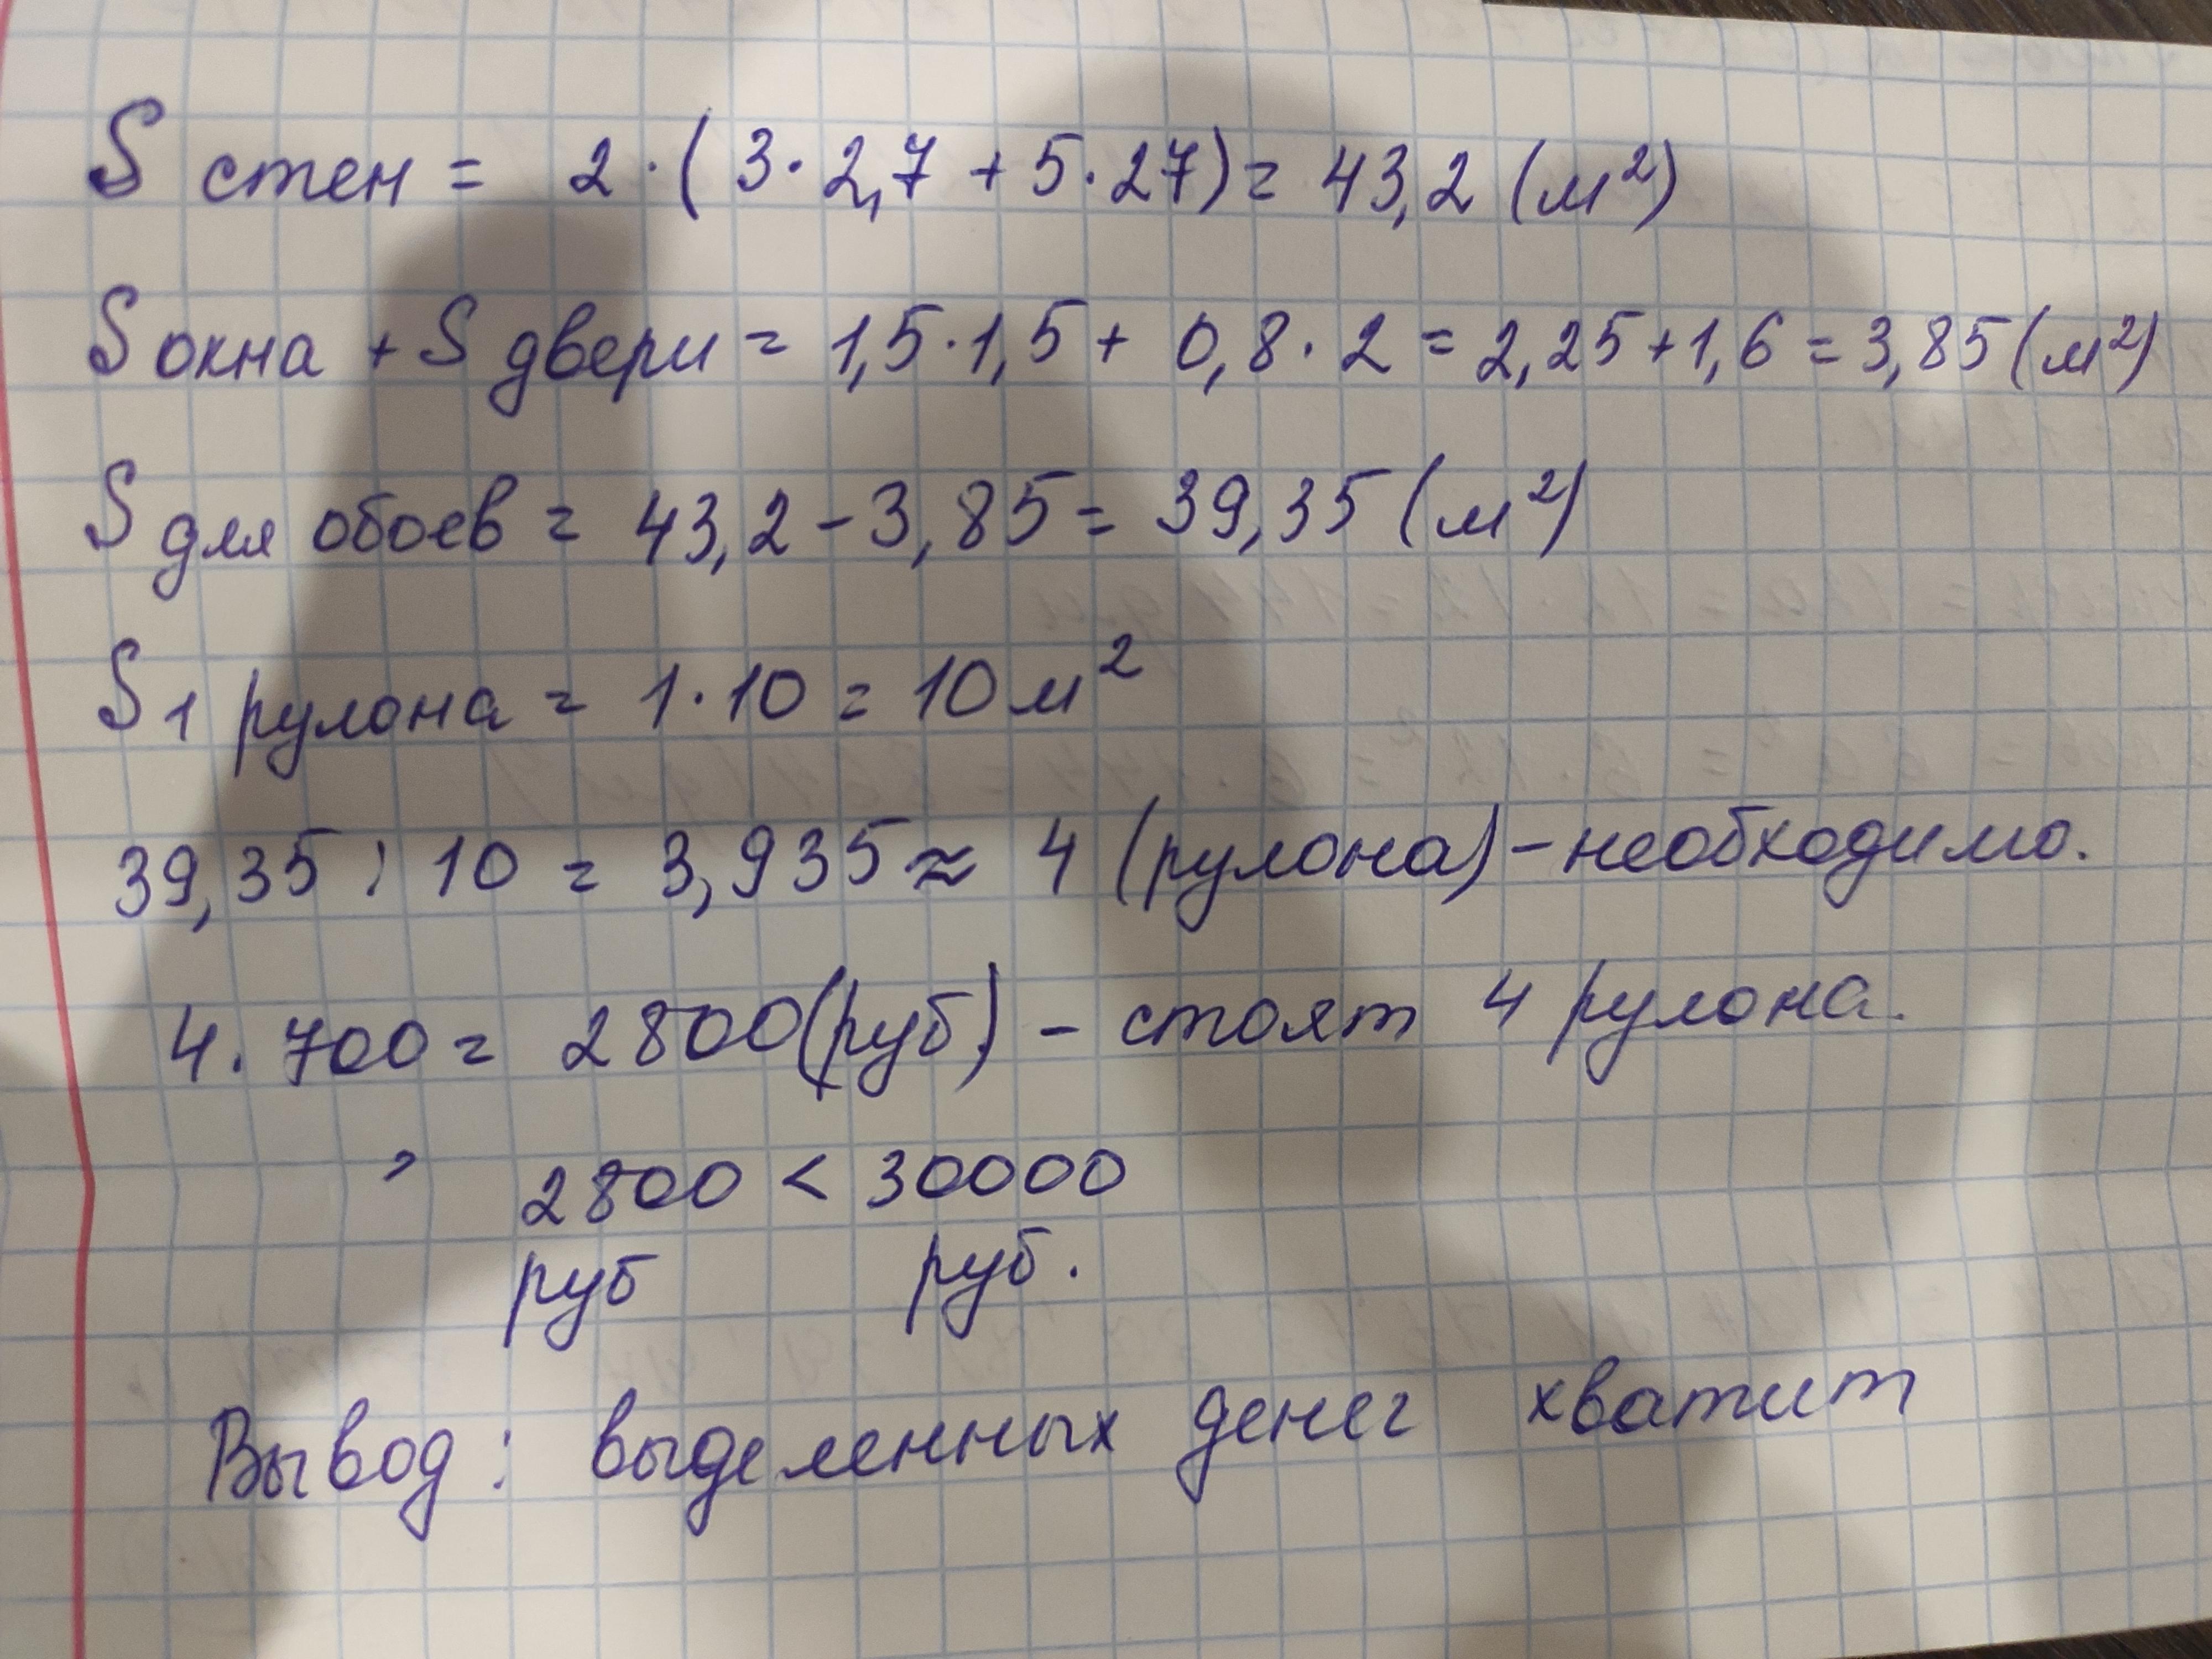 S стен = 2·(3·2,7 + 5·27) = 43,2 (м²)
S окна + S двери = 1,5·1,5 + 0,8·2 = 2,25 + 1,6 = 3,85 (м²)
S для обоев = 43,2 - 3,85 = 39,35 (м²)
S 1 рулона = 1·10 = 10 м²
39,35 : 10 = 3,935 ≈ 4 (рулона) - необходимо.
4·700 = 2800 (руб) - стоят 4 рулона.
2800 < 30000
руб руб.
Вывод: выделенных денег хватит